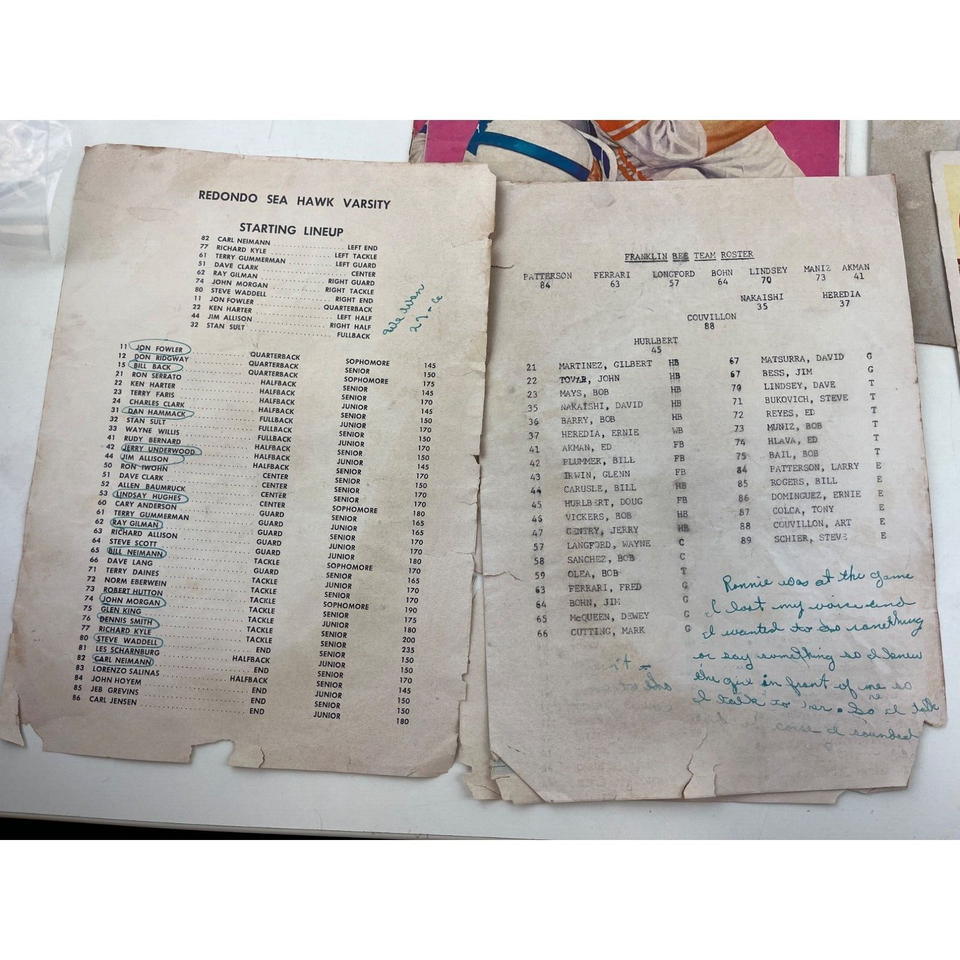 REDONDO SEA HAWK VARSITY
STARTING LINEUP
82 CARL NEIMANN LEFT END
77 RICHARD KYLE LEFT TACKLE
61 TERRY GUMMERMAN LEFT GUARD
51 DAVE CLARK CENTER
62 RAY GILMAN RIGHT GUARD
74 JOHN MORGAN RIGHT TACKLE
80 STEVE WADDELL RIGHT END
11 JON FOWLER QUARTERBACK
22 KEN HARTER LEFT HALF
44 JIM ALLISON RIGHT HALF
32 STAN SULT FULLBACK
We Won
27-6
11 JON FOWLER QUARTERBACK SOPHOMORE 145
12 DON RIDGWAY QUARTERBACK SENIOR 150
15 BILL BACK QUARTERBACK SOPHOMORE 175
21 RON SERRATO HALFBACK SENIOR 145
22 KEN HARTER HALFBACK SENIOR 150
23 TERRY FARIS HALFBACK JUNIOR 145
24 CHARLES CLARK HALFBACK SENIOR 170
31 DAN HAMMACK HALFBACK JUNIOR 150
32 STAN SULT FULLBACK SENIOR 170
33 WAYNE WILLIS FULLBACK JUNIOR 150
41 RUDY BERNARD HALFBACK SENIOR 150
42 JERRY UNDERWOOD HALFBACK JUNIOR 150
44 JIM ALLISON HALFBACK SENIOR 145
50 RON IWOHN CENTER JUNIOR 150
51 DAVE CLARK CENTER SENIOR 170
52 ALLEN BAUMRUCK CENTER SENIOR 150
53 LINDSAY HUGHES CENTER SENIOR 170
60 CARY ANDERSON GUARD SOPHOMORE 150
61 TERRY GUMMERMAN GUARD SENIOR 165
62 RAY GILMAN GUARD JUNIOR 170
63 RICHARD ALLISON GUARD SENIOR 150
64 STEVE SCOTT GUARD JUNIOR 170
65 BILL NEIMANN GUARD JUNIOR 180
66 DAVE LANG TACKLE SOPHOMORE 170
71 TERRY DAINES TACKLE SENIOR 165
72 NORM EBERWEIN TACKLE JUNIOR 170
73 ROBERT HUTTON TACKLE SENIOR 190
74 JOHN MORGAN TACKLE SOPHOMORE 175
75 GLEN KING TACKLE SENIOR 180
76 DENNIS SMITH TACKLE JUNIOR 200
77 RICHARD KYLE TACKLE SENIOR 235
80 STEVE WADDELL END SENIOR 150
81 LES SCHARNBURG END JUNIOR 150
82 CARL NEIMANN HALFBACK SENIOR 170
83 LORENZO SALINAS END JUNIOR 145
84 JOHN HOYEM HALFBACK SENIOR 150
85 JEB GREVINS END SENIOR 150
86 CARL JENSEN END JUNIOR 180
FRANKLIN BEE TEAM ROSTER
PATTERSON FERRARI LONGFORD BOHN LINDSEY MANIZ AKMAN
84 63 57 64 70 73 41
NAKAISHI HEREDIA
35 37
COUVILLON
88
HURLBERT
45
21 MARTINEZ, GILBERT HB
22 TOVAR, JOHN HB
23 MAYS, BOB HB
35 NAKAISHI, DAVID HB
36 BARRY, BOB HB
37 HEREDIA, ERNIE WB
41 AKMAN, ED FB
42 PLUMMER, BILL FB
43 IRWIN, GLENN FB
44 CARUSLE, BILL HB
45 HURLBERT, DOUG FB
46 VICKERS, BOB HB
47 GENTRY, JERRY HB
57 LANGFORD, WAYNE C
58 SANCHEZ, BOB C
59 OLEA, BOB T
63 FERRARI, FRED G
64 BOHN, JIM G
65 McQUEEN, DEWEY G
66 CUTTING, MARK G
67 MATSURRA, DAVID G
67 BESS, JIM G
70 LINDSEY, DAVE T
71 BUKOVICH, STEVE T
72 REYES, ED T
73 MUNIZ, BOB T
74 HLAVA, ED T
75 BAIL, BOB T
84 PATTERSON, LARRY E
85 ROGERS, BILL E
86 DOMINGUEZ, ERNIE E
87 COLCA, TONY E
88 COUVILLON, ART E
89 SCHIER, STEVE E
Ronnie was at the game
I lost my voice and
I wanted to do something
or say something so I knew
the girl in front of me so
I talk to her. So I talk
cause I sounded